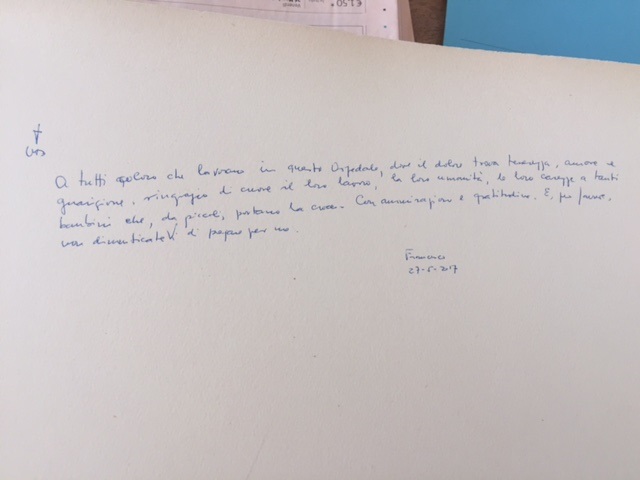 €1,50
A tutti coloro che lavorano in questo Ospedale, dove il dolore trova tenerezza, amore e
guarigione, ringrazio di cuore il loro lavoro, la loro umanità, le loro carezze a tanti
bambini che, da piccoli, portano la croce. Con ammirazione e gratitudine. E, per favore,
non dimenticatevi di pregare per me.
Francesco
27-5-2017